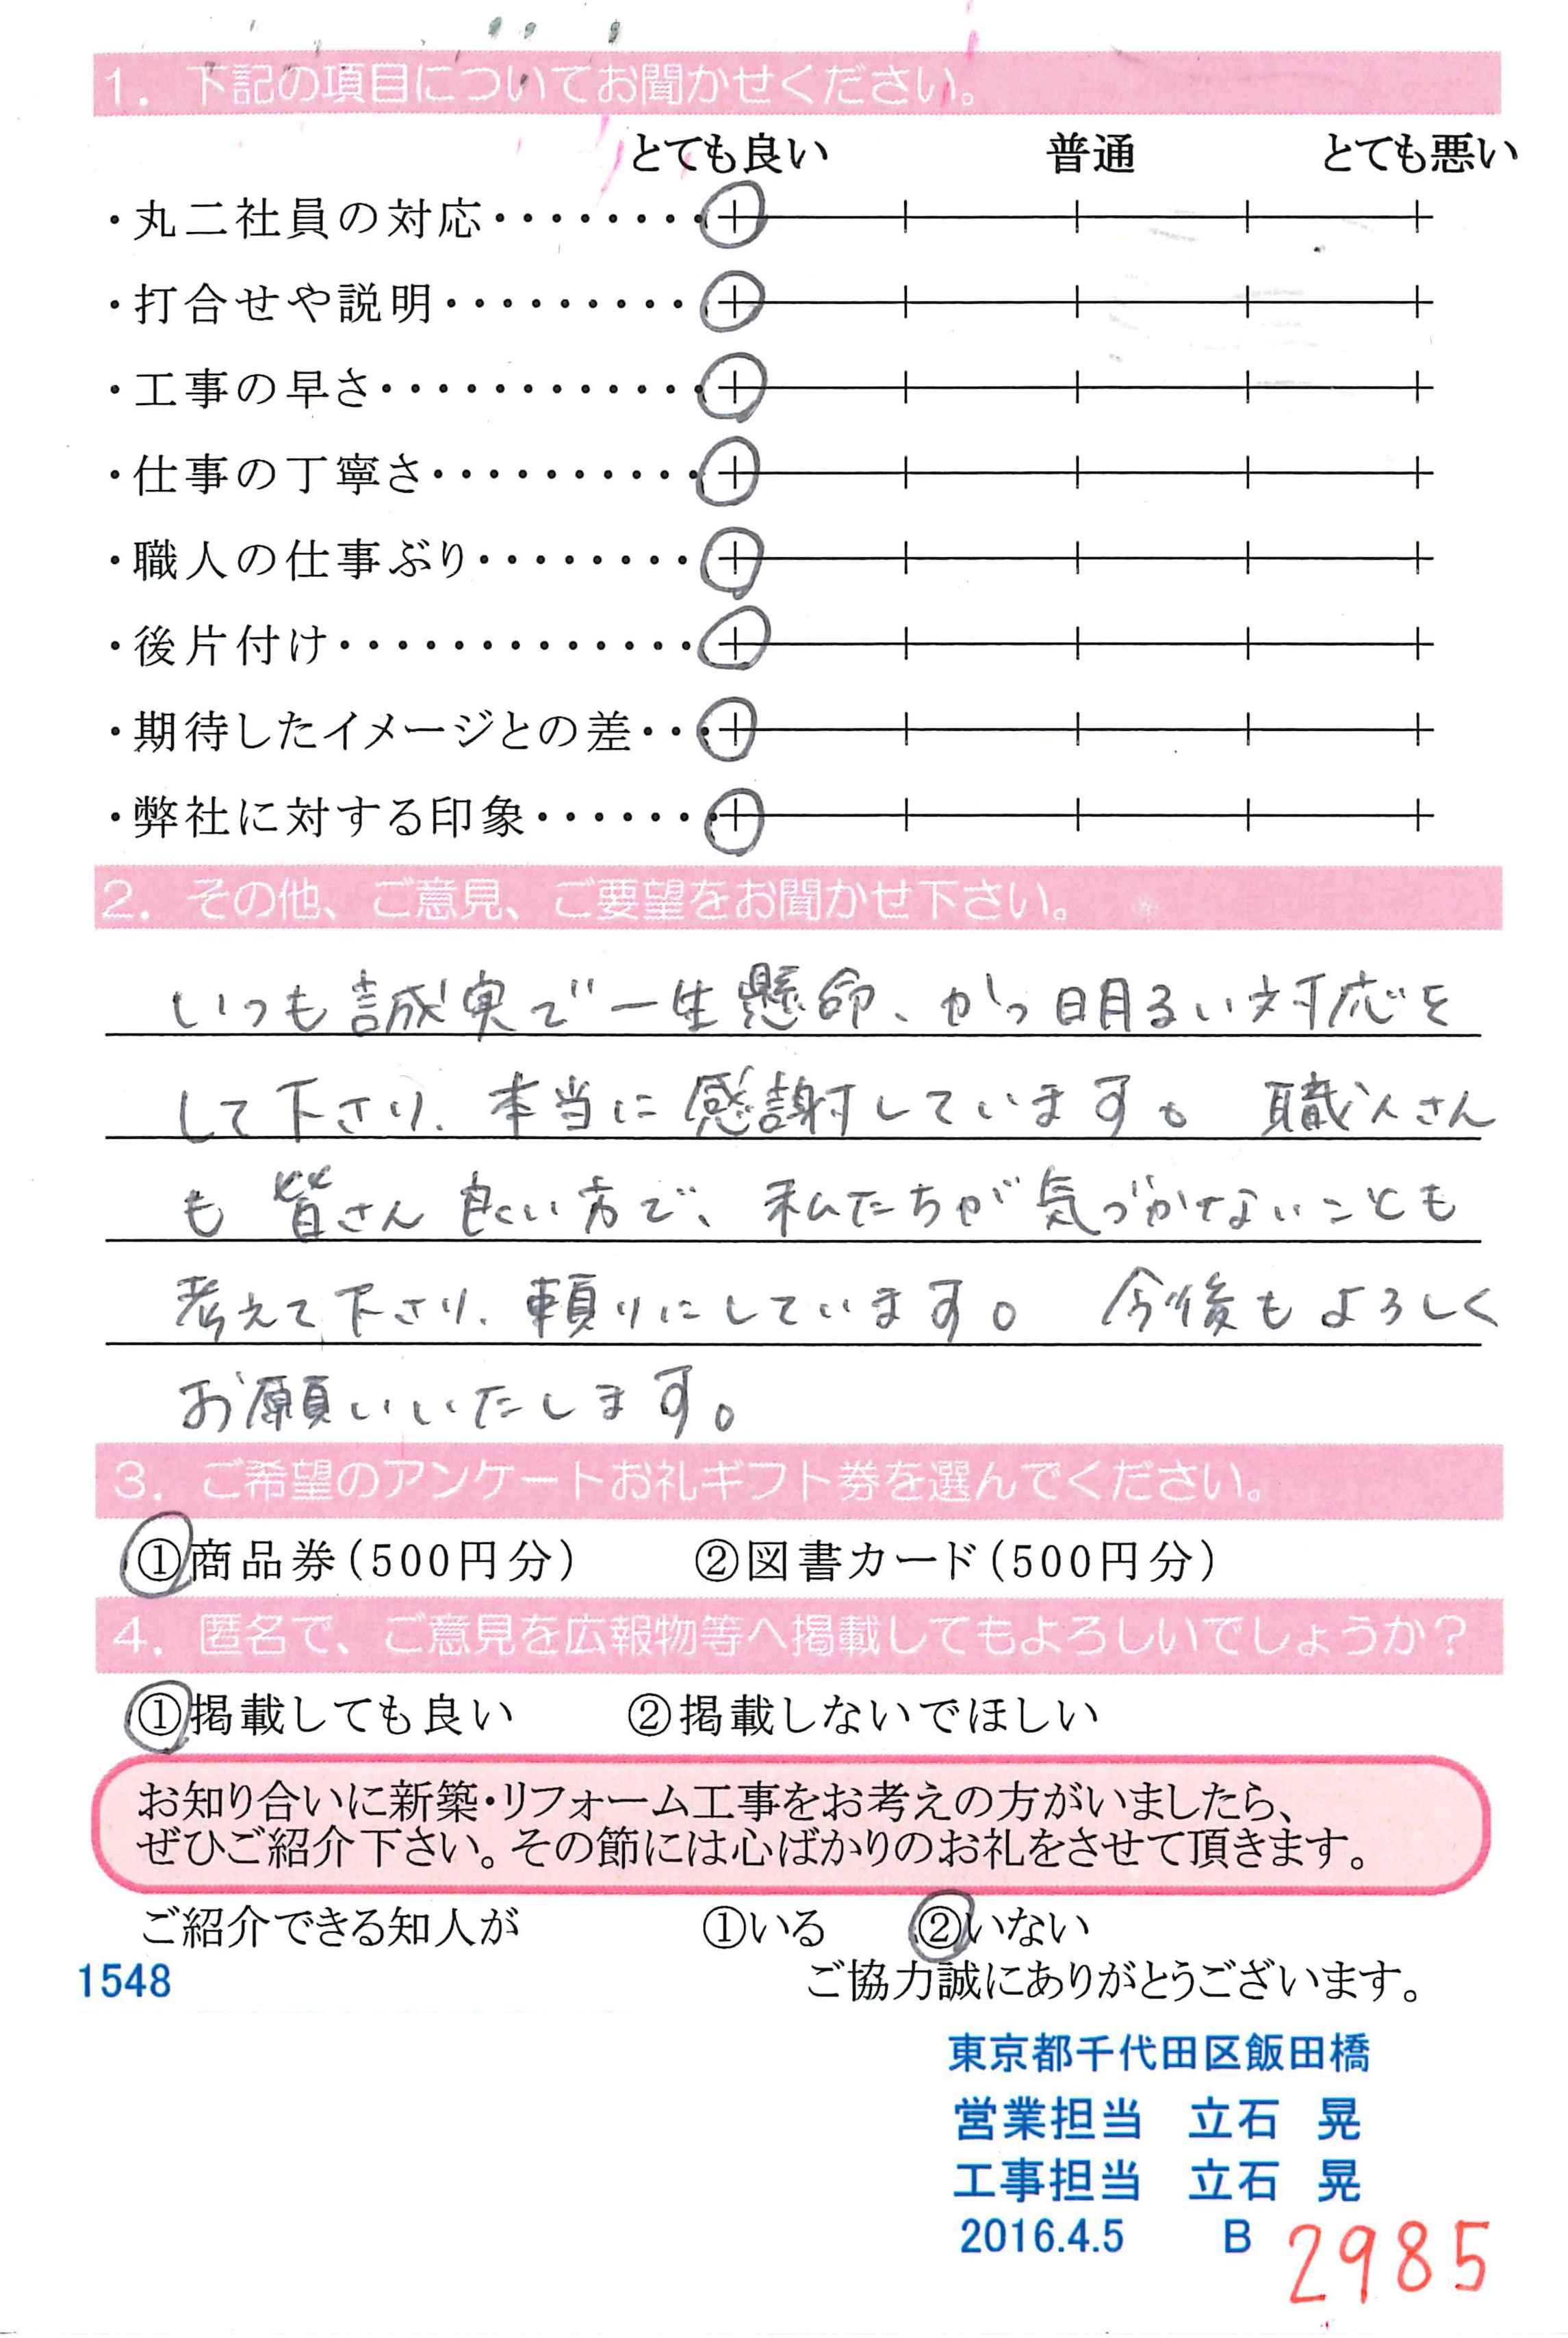 1. 下記の項目についてお聞かせください。
とても良い 普通 とても悪い
・丸二社員の対応････････
・打合せや説明･････････
・工事の早さ････････････
・仕事の丁寧さ･･････････
・職人の仕事ぶり････････
・後片付け･････････････
・期待したイメージとの差･･･
・弊社に対する印象･･･････
2. その他、ご意見、ご要望をお聞かせ下さい。
いつも誠実で一生懸命、かつ明るい対応を
して下さり、本当に感謝しています。 職人さん
も皆さん良い方で、私たちが気づかないことも
考えて下さり、頼りにしています。 今後もよろしく
お願いいたします。
3. ご希望のアンケートお礼ギフト券を選んでください。
①商品券(500円分) ②図書カード(500円分)
4. 匿名で、ご意見を広報物等へ掲載してもよろしいでしょうか?
①掲載しても良い ②掲載しないでほしい
お知り合いに新築・リフォーム工事をお考えの方がいましたら、
ぜひご紹介下さい。その節には心ばかりのお礼をさせて頂きます。
ご紹介できる知人が ①いる ②いない
1548 ご協力誠にありがとうございます。
東京都千代田区飯田橋
営業担当 立石 晃
工事担当 立石 晃
2016.4.5 B 2985